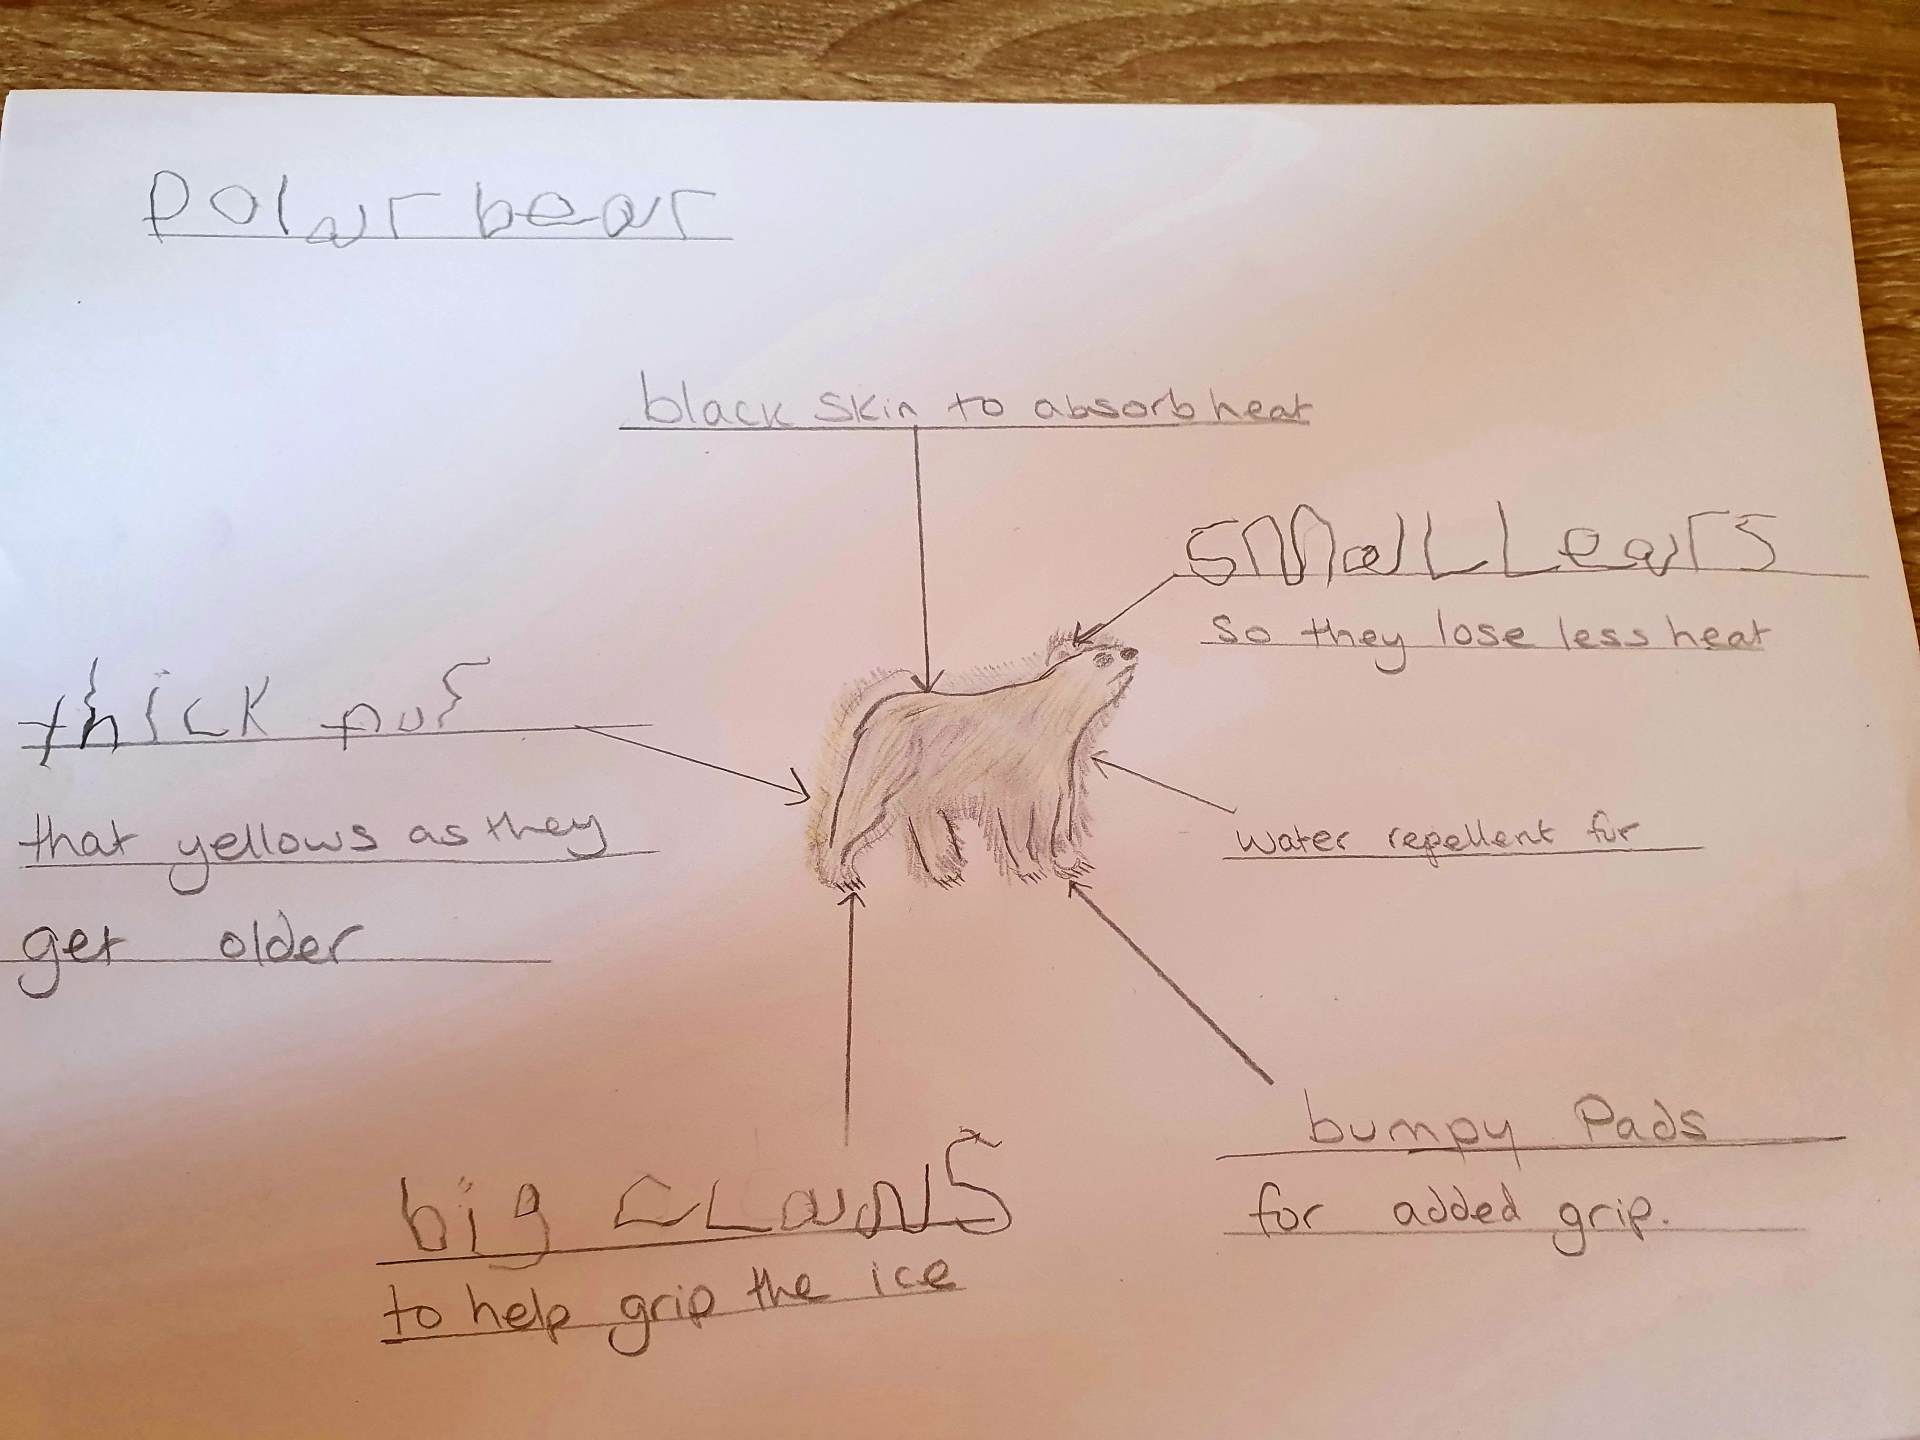 Polar bear
black skin to absorb heat
smaLL ears
so they lose less heat
thick pur
that yellows as they
get older
water repellent fur
big claws
to help grip the ice
bumpy Pads
for added grip.